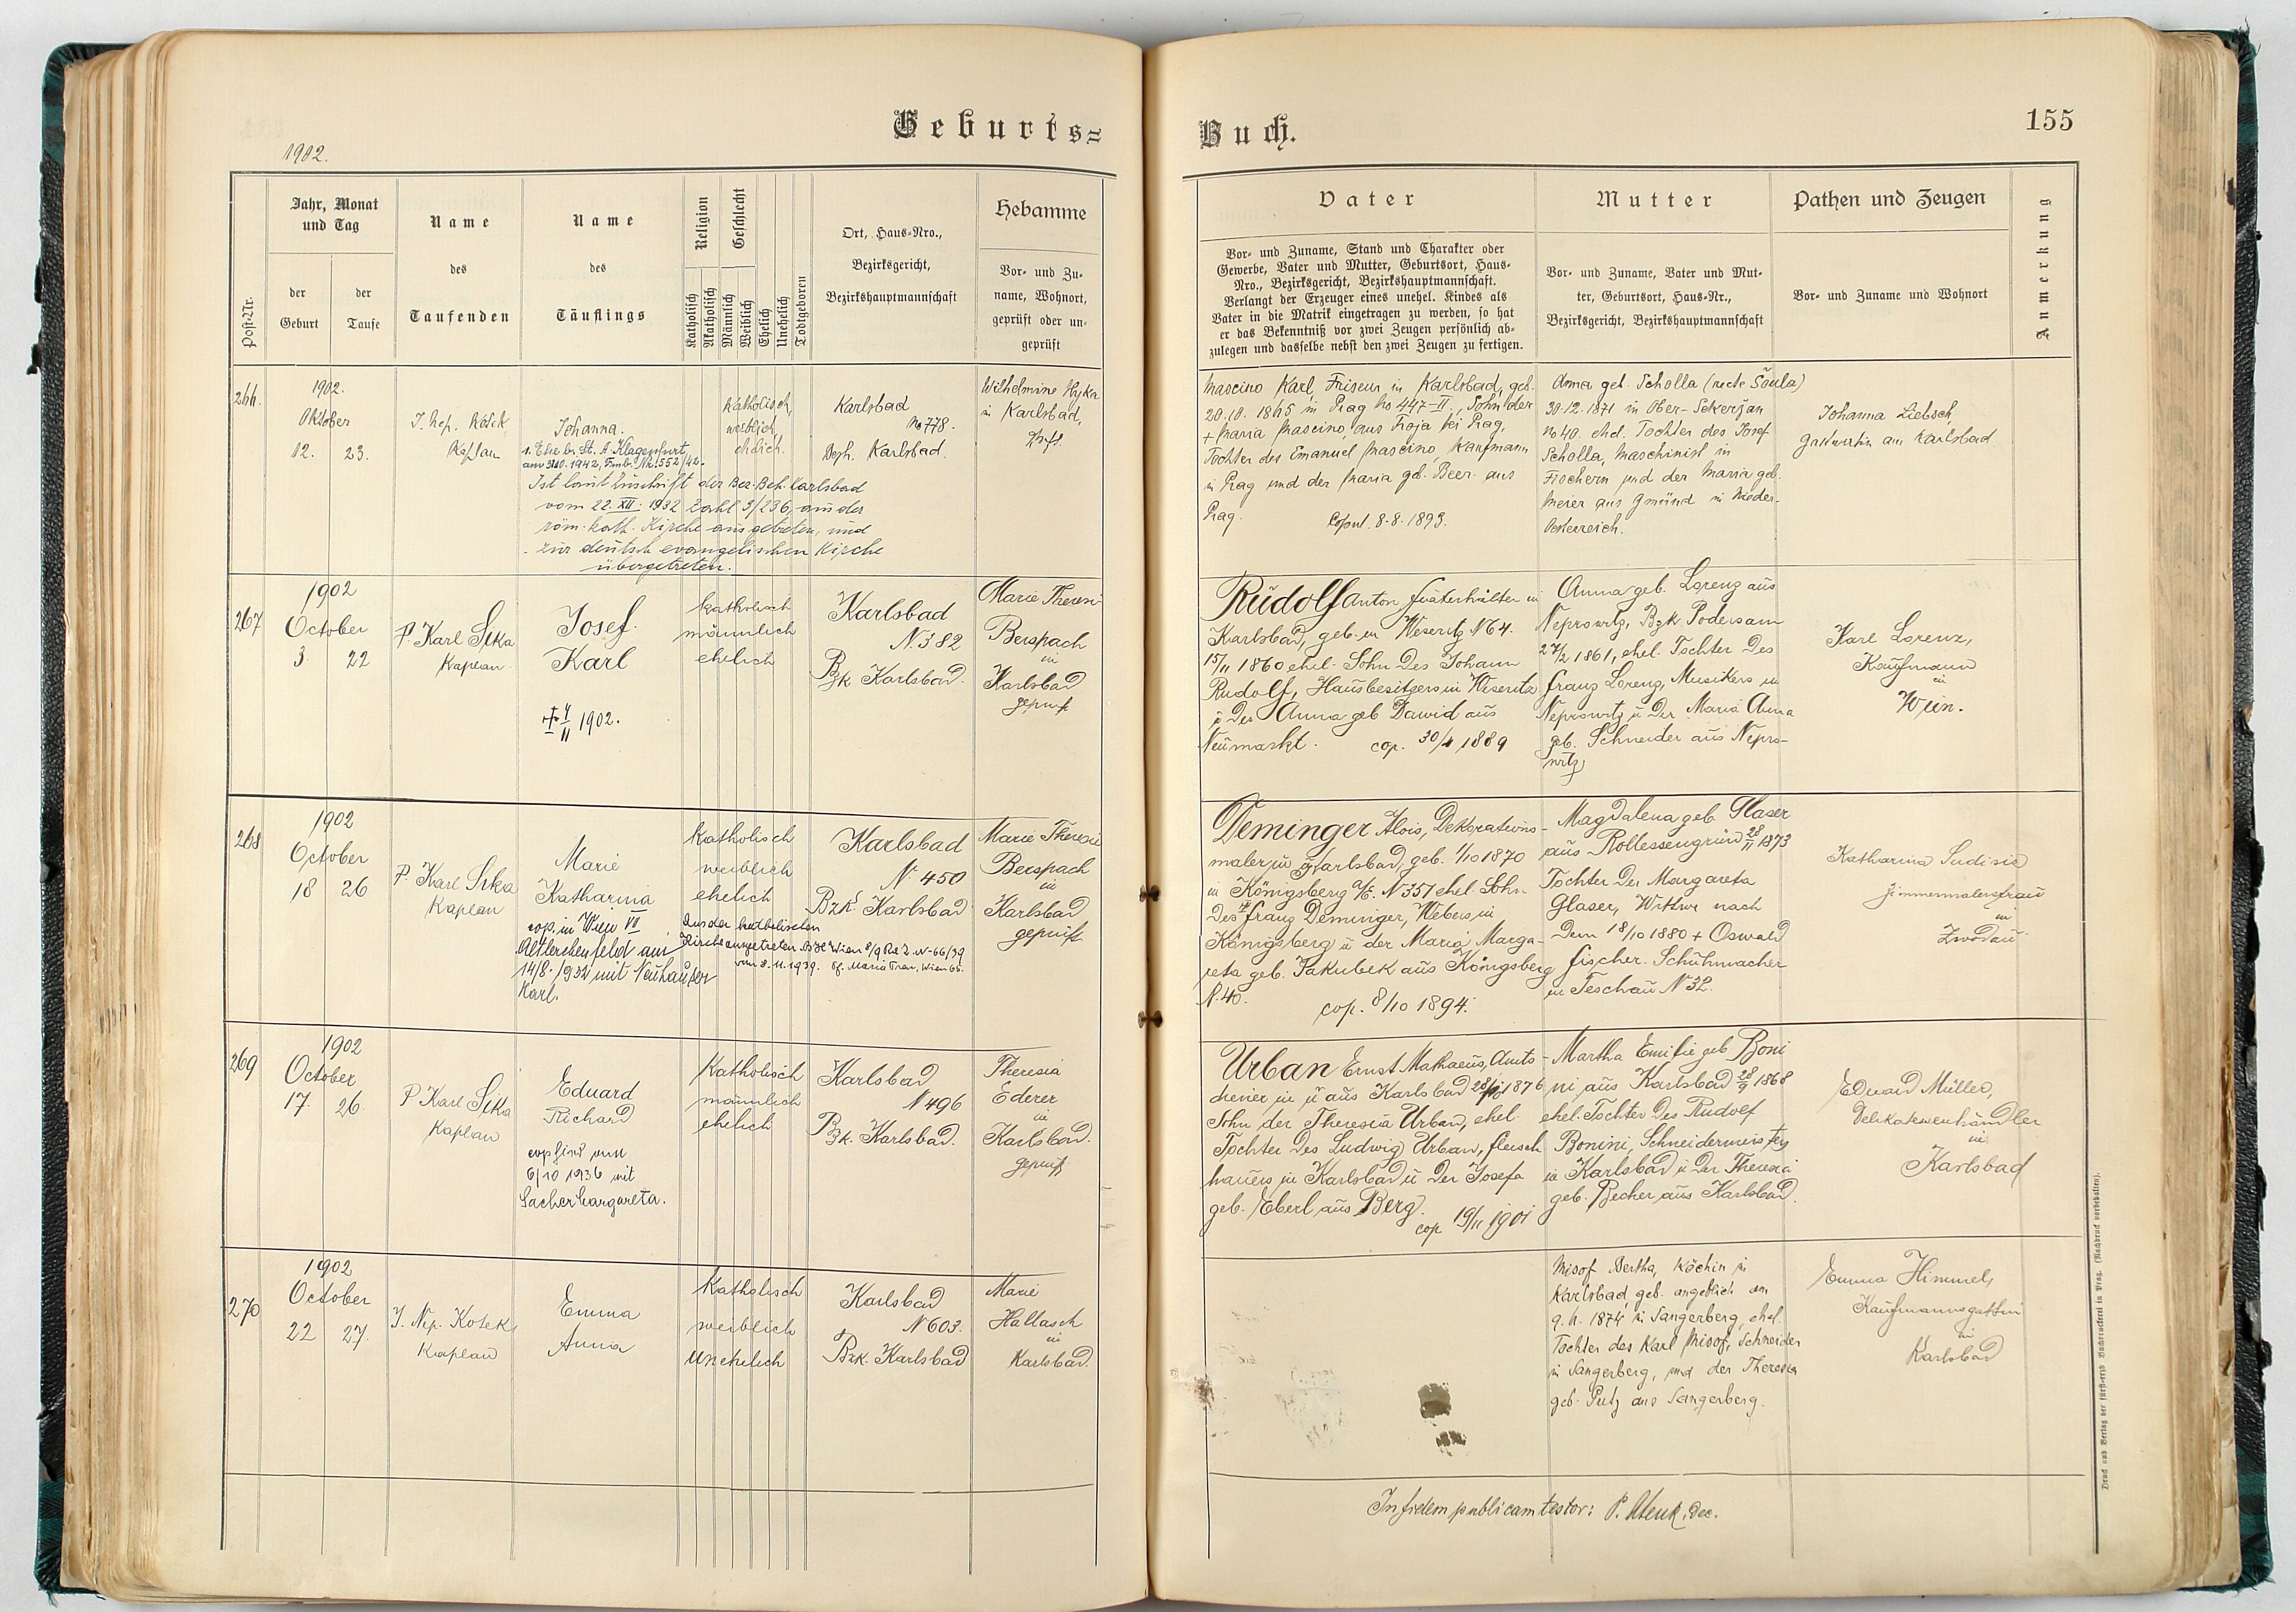 Geburts=
1902.
Post-Nr.
Jahr, Monat
und Tag
der
Geburt
der
Taufe
Name
des
Taufenden
Name
des
Täuflings
Religion
Geschlecht
Katholisch
Akatholisch
Männlich
Weiblich
Ehelich
Unehelich
Todtgeboren
Ort, Haus-Nro.,
Bezirksgericht,
Bezirkshauptmannschaft
Hebamme
Vor- und Zu-
name, Wohnort,
geprüft oder un-
geprüft
266.
1902.
Oktober
12. 23.
J. Nep.
Kaplan
Johanna.
1. Ehe b. St. A. Klagenfurt,
am 3.10.1942, Fmb. Nr. 552/42.
Ist laut Zuschrift der Bez. Beh. Karlsbad
vom 22. XII. 1932 Zahl 3/236, aus der
röm. kath. Kirche ausgetreten, und
zur deutsch evangelischen Kirche
übergetreten.
katholisch,
weiblich
ehelich.
Karlsbad
No 778.
Karlsbad.
Wilhelmine
in Karlsbad,
267
1902
October
3. 22
P. Karl Sika
Kaplan.
Josef
Karl
1902.
katholisch
männlich
ehelich
Karlsbad
N. 382
Bzk Karlsbad.
Marie Theresi
Berspach
in
Karlsbad
geprüft
268
1902
October
18 26
P. Karl Sika
Kaplan
Marie
Katharina
cop. in Wien VII
Altlerchenfeld am
14/8. 1932 mit Neuhauser
Karl.
katholisch
weiblich
ehelich
Aus der katholischen
Kirche ausgetreten. Wien 8/9 66/39
vom 8.11.1939. Wien
Karlsbad
N 450
Bzk. Karlsbad
Marie Theresie
Berspach
in
Karlsbad
geprüft
269
1902
October
17. 26.
P Karl Sika
Kaplan
Eduard
Richard
6/10 1936 mit
Sacher Margareta.
katholisch
männlich
ehelich
Karlsbad
N 496
Bzk. Karlsbad.
Theresia
Ederer
in
Karlsbad.
geprüft
270
1902
October
22 27.
J. Nep. Kotek,
Kaplan
Emma
Anna
katholisch
weiblich
unehelich
Karlsbad
N 603.
Bzk. Karlsbad
Marie
Hallasch
in
Karlsbad.
Buch.
155
Vater
Vor- und Zuname, Stand und Charakter oder
Gewerbe, Vater und Mutter, Geburtsort, Haus-
Nro., Bezirksgericht, Bezirkshauptmannschaft.
Verlangt der Erzeuger eines unehel. Kindes als
Vater in die Matrik eingetragen zu werden, so hat
er das Bekenntniß vor zwei Zeugen persönlich ab-
zulegen und dasselbe nebst den zwei Zeugen zu fertigen.
Mutter
Vor- und Zuname, Vater und Mut-
ter, Geburtsort, Haus-Nr.,
Bezirksgericht, Bezirkshauptmannschaft
Pathen und Zeugen
Vor- und Zuname und Wohnort
Anmerkung
Mascino Karl, Friseur in Karlsbad, geb.
20.10. 1865 in Prag No 447-II., Sohn der
+ Maria Mascino, aus Troja bei Prag,
Tochter des Emanuel Mascino, Kaufmann
in Prag und der Maria geb. Beer aus
Prag. Copul. 8.8.1893.
Anna geb. Scholla (recte Šoula)
30.12.1871 in Ober-Sekeržan
No 40. ehel. Tochter des Josef
Scholla, Maschinist in
Fischern und der Maria geb.
Meier aus Gmünd in Nieder-
Oesterreich.
Johanna Liebsch,
aus Karlsbad
Rudolf Anton in
Karlsbad, geb. in Weseritz N 64.
15/11 1860 ehel. Sohn des Johann
Rudolf, Hausbesitzers in Weseritz
u der Anna geb Dawid aus
Neumarkt. cop. 30/4 1889
Anna geb. Lorenz aus
Neprowitz, Bzk Podersam
27/2 1861, ehel. Tochter des
Franz Lorenz, Musikers in
Neprowitz u der Maria Anna
geb. Schneider aus Nepro-
witz
Karl Lorenz,
Kaufmann
in
Wien.
Deminger Alois, Dekorations-
maler in Karlsbad, geb. 1/10 1870
in Königsberg a/E. N 351 ehel. Sohn
des Franz Deminger, Webers in
Königsberg u der Maria Marga-
reta geb. Jakubek aus Königsberg
N. 40. cop. 8/10 1894.
Magdalena geb. Glaser
aus Rollessengrün 28/11 1873
Tochter der Margareta
Glaser, Wittwe nach
dem 18/10 1880 + Oswald
Fischer. Schuhmacher
in Teschau N 32.
Katharina
Zimmermalersfrau
in
Zwodau
Urban Ernst Mathaeus, Amts-
diener in u aus Karlsbad 1876
Sohn der Theresia Urban, ehel.
Tochter des Ludwig Urban, Fleisch
hauers in Karlsbad u der Josefa
geb. Eberl aus Berg.
cop 19/11 1901
Martha Emilie geb Boni
ni aus Karlsbad 28/9 1868
ehel. Tochter des Rudolf
Bonini, Schneidermeisters
in Karlsbad u der Theresia
geb. Becher aus Karlsbad.
Eduard Müller,
Delikatessenhändler
in
Karlsbad
Misof Bertha, Köchin in
Karlsbad, geb. angeblich am
1874 in Sangerberg, ehel.
Tochter des Karl Misof, Schneider
in Sangerberg, und der Theresia
geb. Putz aus Sangerberg.
Emma Himmel,
Kaufmannsgattin
in
Karlsbad
In fidem publicam testor: P. Dec.
Druck und Verlag der fürst-erzb. Buchdruckerei in Prag. (Nachdruck vorbehalten).